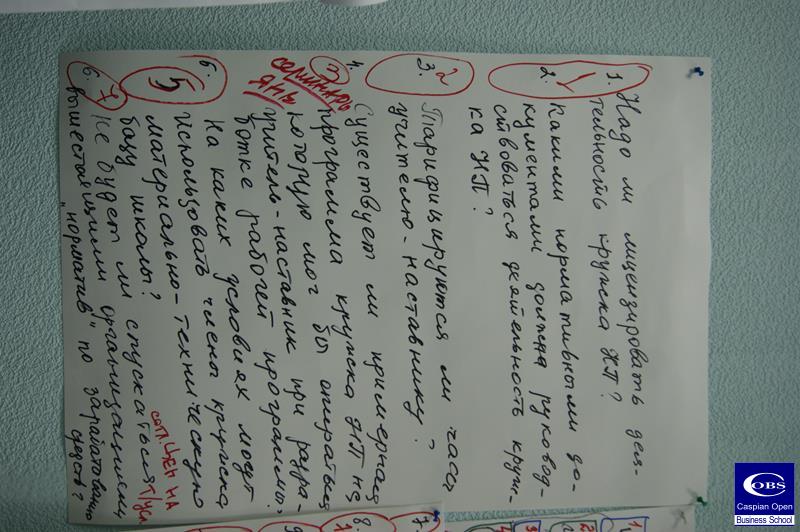 1. Надо ли лицензировать дея-
тельность кружка НП?
2. 1
Какими нормативными до-
кументами должна руковод-
ствоваться деятельность круж-
ка НП?
3. 2
Тарифицируются ли часы
учителю-наставнику?
4. 3
семинар
ЯНВ
Существует ли примерная
программа кружка НП на
которую мог бы опираться
учитель-наставник при разра-
ботке рабочей программы?
5. 5
На каких условиях могут
использовать члены кружка
материально-техническую
базу школы?
6. 7
Не будет ли спускаться
вышестоящими организациями
"норматив" по зарабатыванию
средств?
ЦЕН НА
7
8.
1
2
3
OBS
Caspian Open
Business School